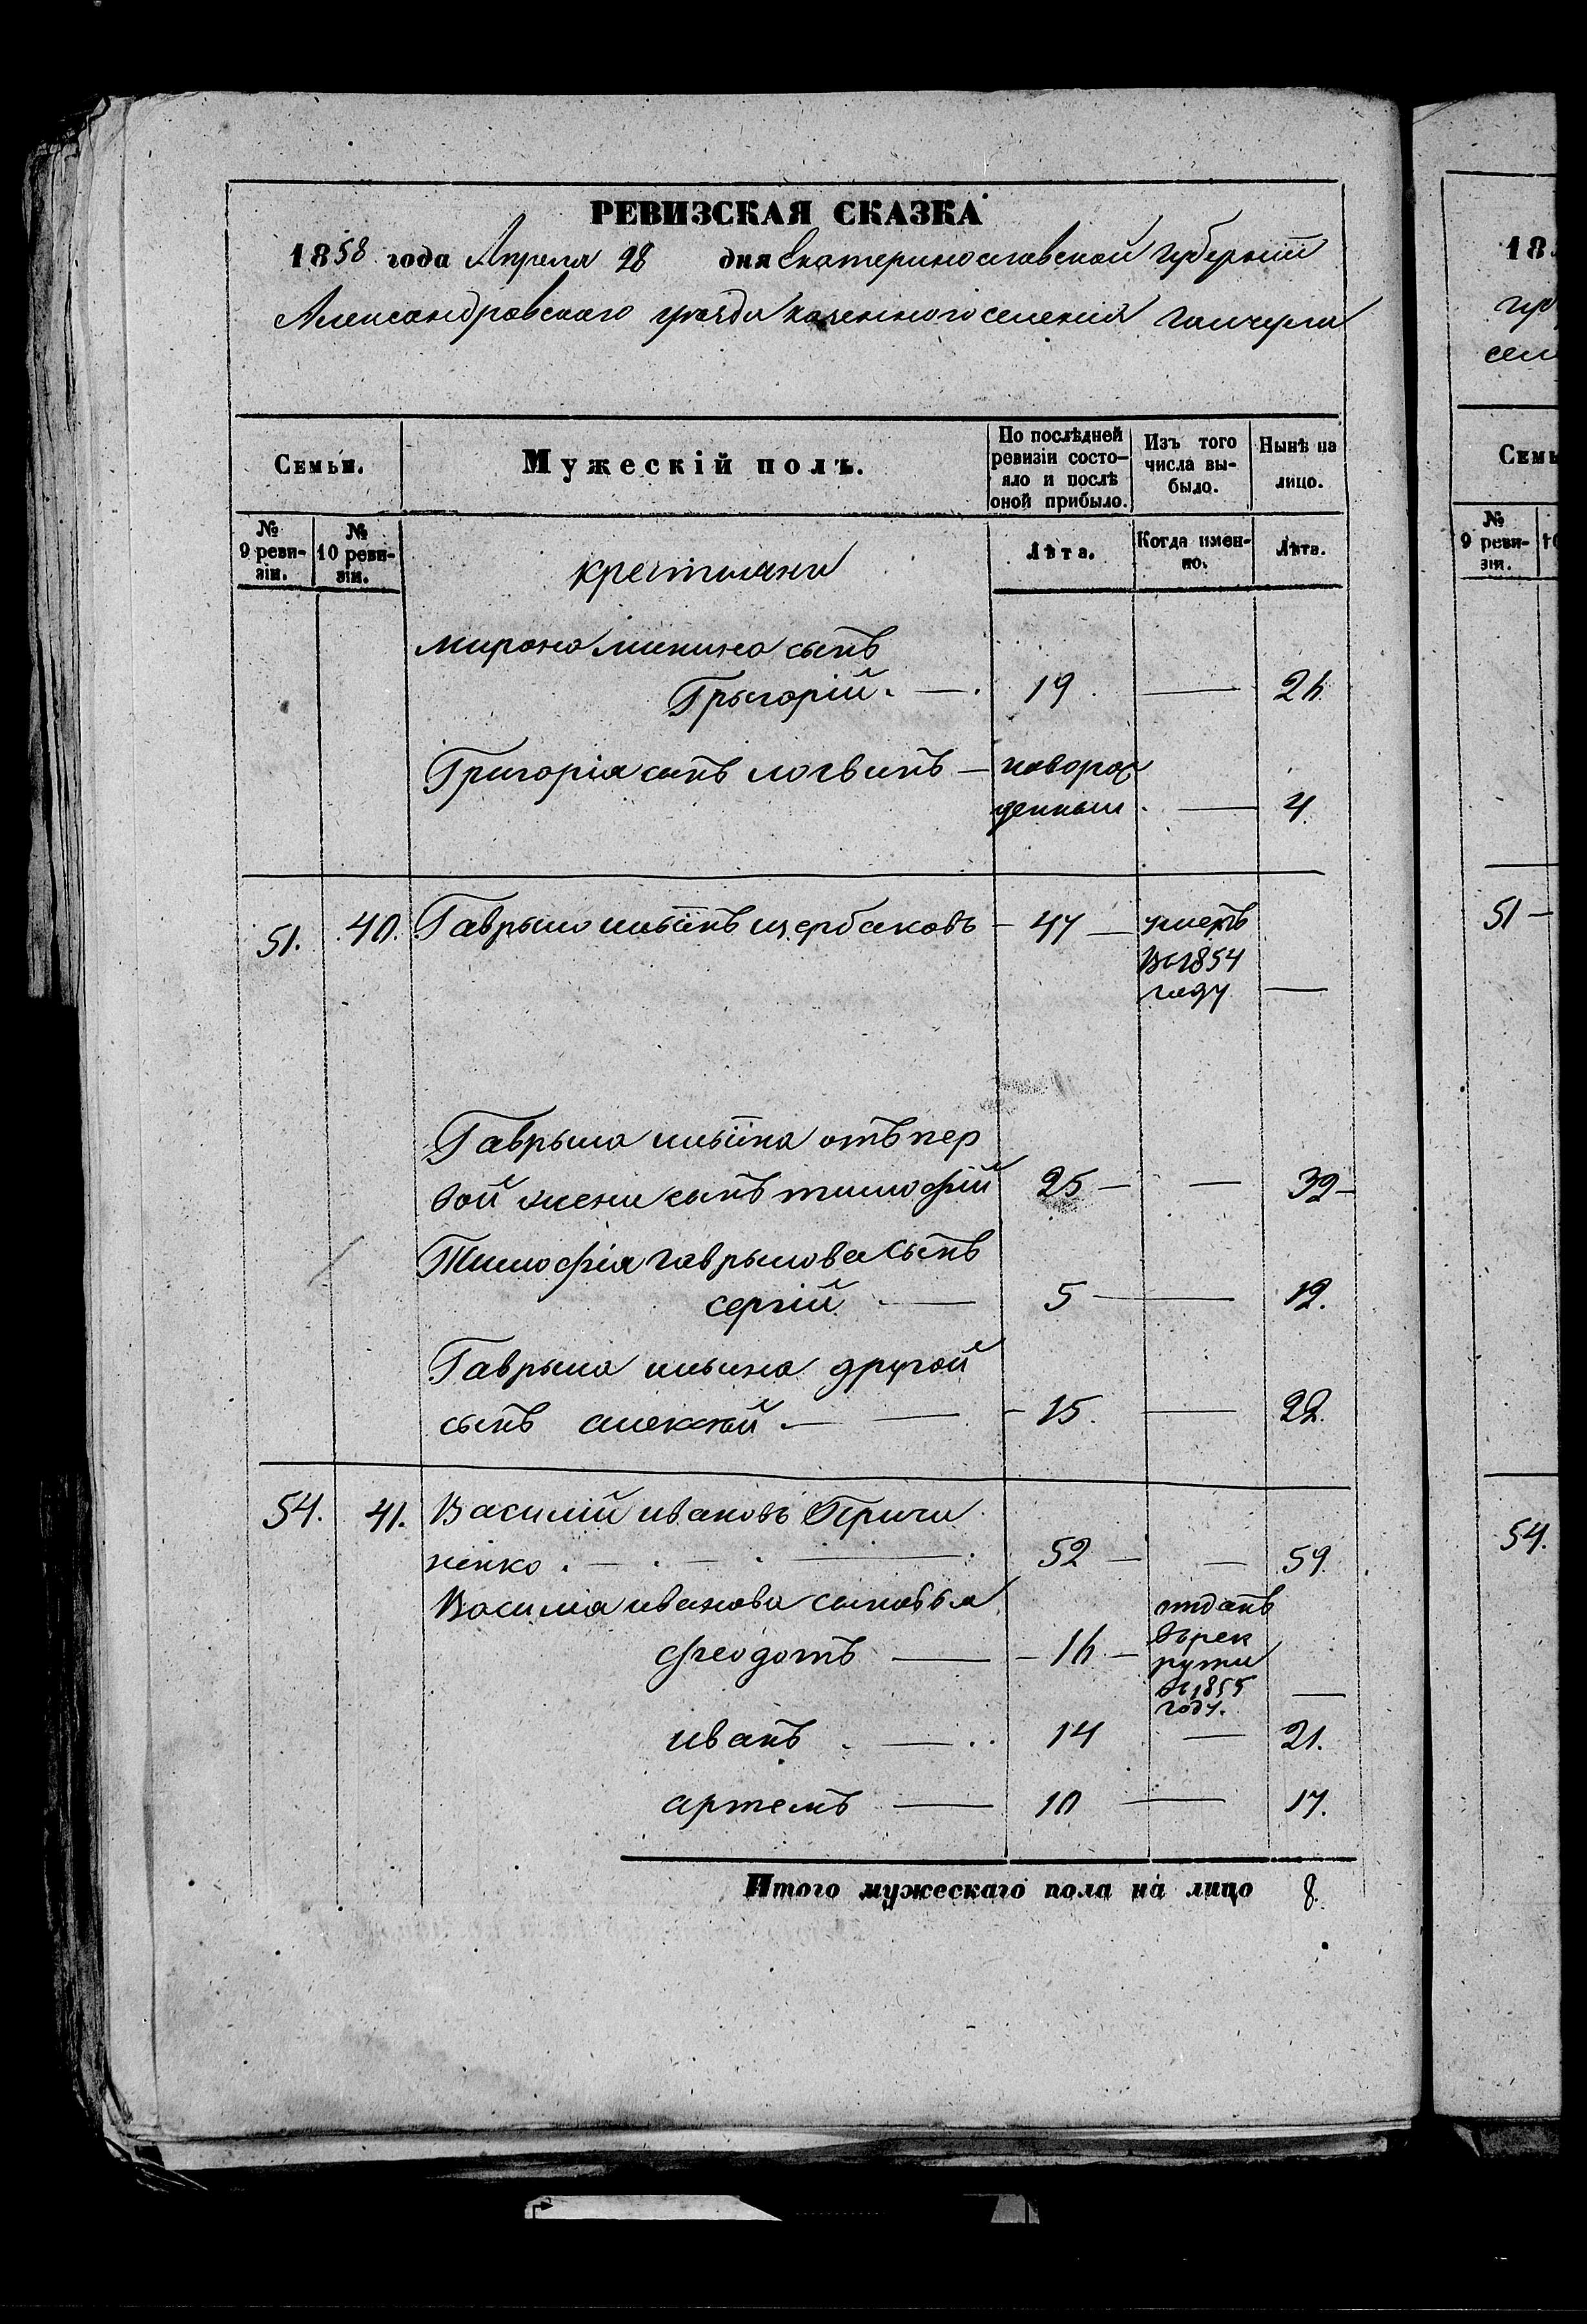 РЕВИЗСКАЯ СКАЗКА
1858 года Апреля 28 дня Екатеринославской губерніи
Александровскаго уезда казенного селения Гайчула
Семьи.
Мужескій полъ.
По послѣдней ревизіи состо-
яло и послѣ
оной прибыло.
Изъ того
числа вы-
было.
Нынѣ на
лицо.
№
9 реви-
зіи.
№
10 реви-
зіи.
крестьяни
Лѣта.
Когда имен-
но.
Лѣта.
мирона минина сынъ
Грыгорій. — 19. — 26
Григорія сынъ логвинъ — новорож
денным. — 4.
51. 40. Гаврыло ильинъ щербаковъ — 47 — умеръ
въ 1854
году —
Гаврыла ильина отъ пер
вой жени сынъ тимофій 25 — — 32 —
Тимофія гаврылова сынъ
сергій — 5 — 12.
Гаврыла ильина другой
сынъ алексий — — 15. — 22.
54. 41. Василій ивановъ
ненко. — 52 — — 59
Василія иванова сыновья
феодотъ — 16 — отданъ
въ рек
рути
въ 1855
году. —
иванъ. — 14 — 21.
артемъ — 10 — 17.
Итого мужескаго пола на лицо 8.
18
сели
Семь
№
9 реви-
зіи.
51 —
54.